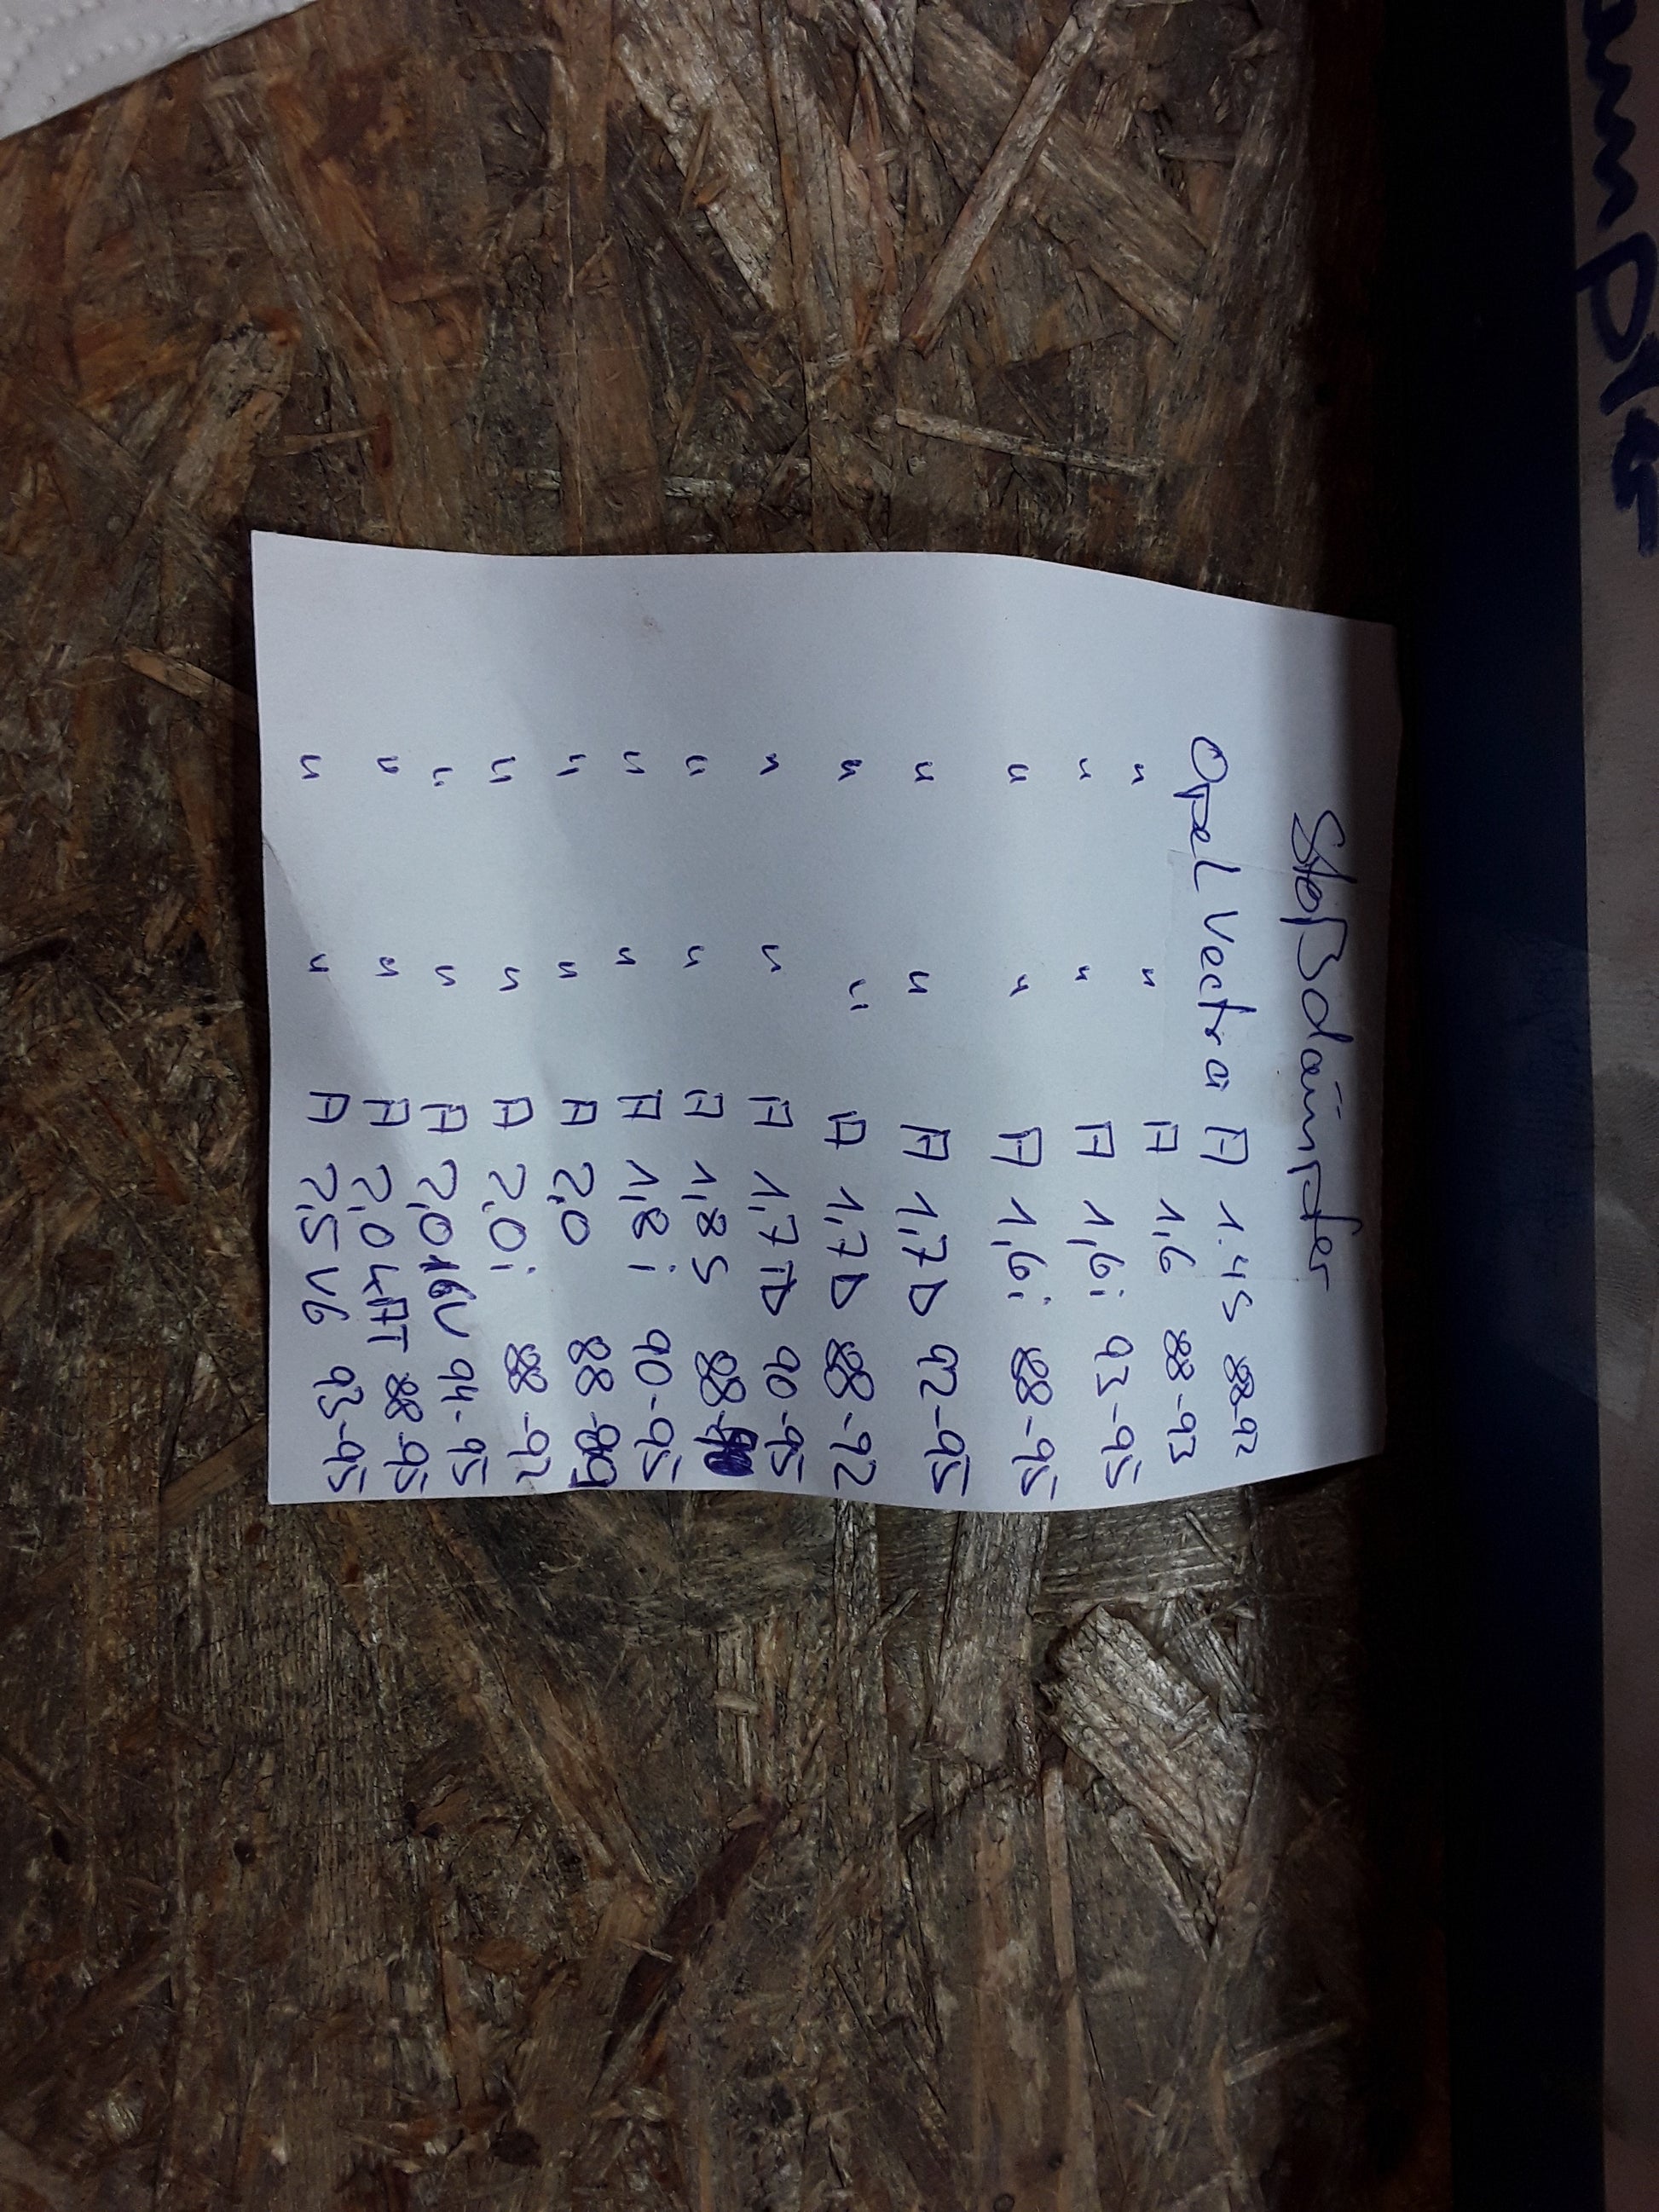 Stoßdämpfer
Opel Vectra A 1.4 S 88-92
" " A 1,6 88-93
" " A 1,6i 93-95
" " A 1,6i 88-95
" " A 1,7D 92-95
" " A 1,7D 88-92
" " A 1,7TD 90-95
" " A 1,8S 88-
" " A 1,8i 90-95
" " A 2,0 88-89
" " A 2,0i 88-92
" " A 2,0 16V 94-95
" " A 2,0 4x4T 88-95
" " A 2,5 V6 93-95